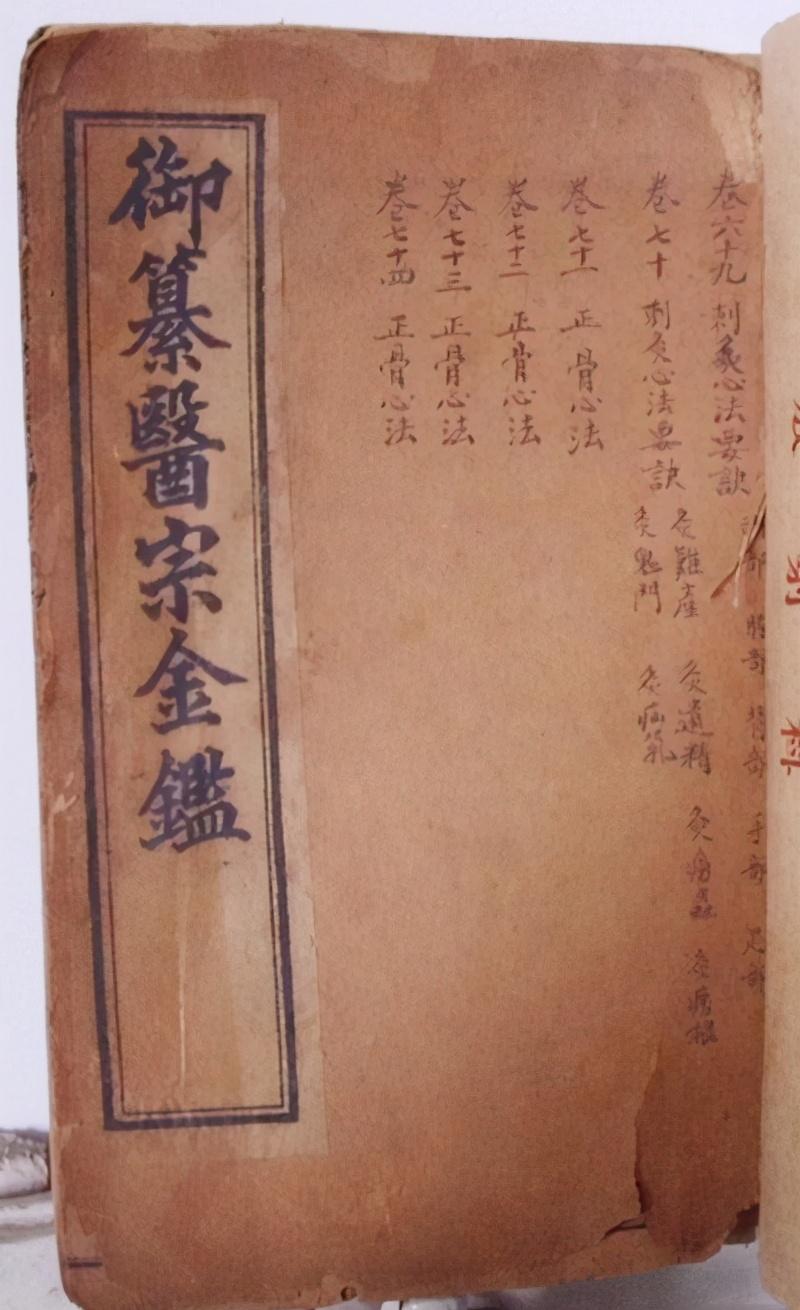 卷六十九 刺灸心法要訣
部 胸部 背部 手部 足部
卷七十 刺灸心法要訣
灸難產 灸遺精 灸癆蟲 瘧根
灸鬼門 灸疝氣
卷七十一 正骨心法
卷七十二 正骨心法
卷七十三 正骨心法
卷七十四 正骨心法
御纂醫宗金鑑